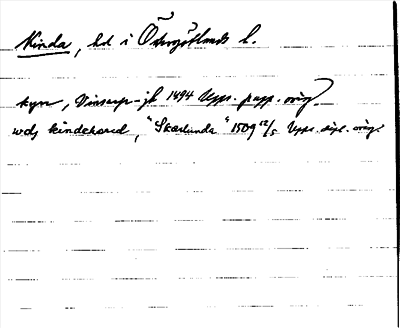 Kinda, hd i Östergötlands l.
kyn, Vinsarp-jb 1494 Upps. papp. orig.
wdj kindehæred, "Skælunda" 1509 12/5 Upps. dipl. orig.